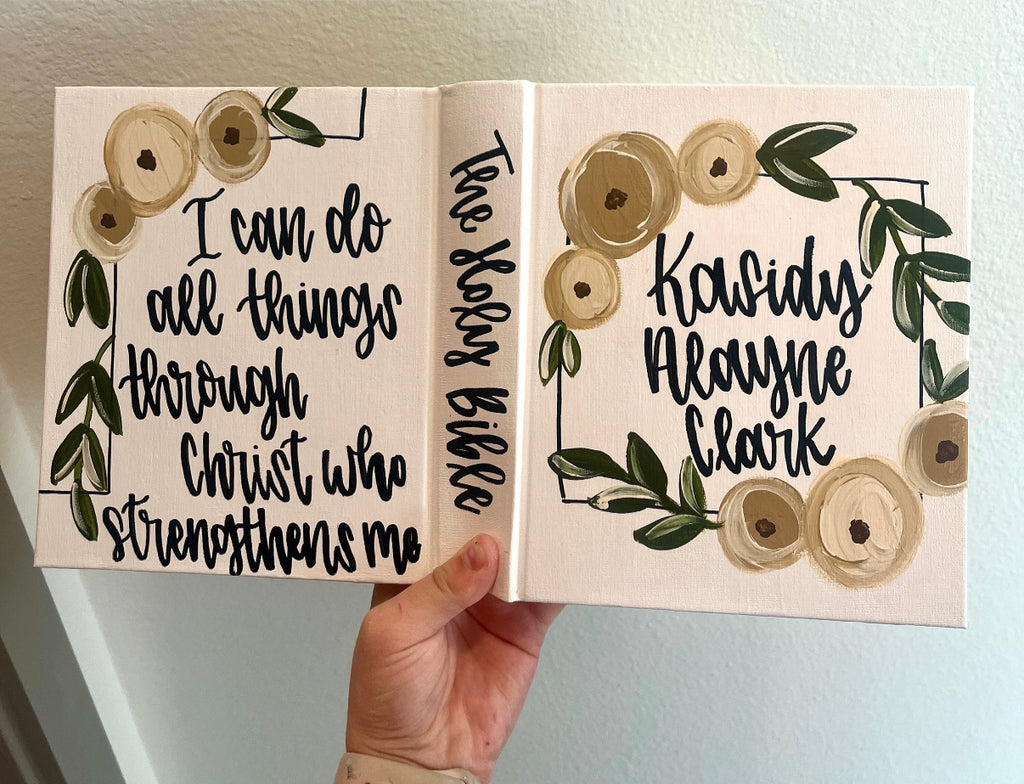 I can do
all things
through
Christ who
strengthens me
The Holy Bible
Kasidy
Alayne
Clark